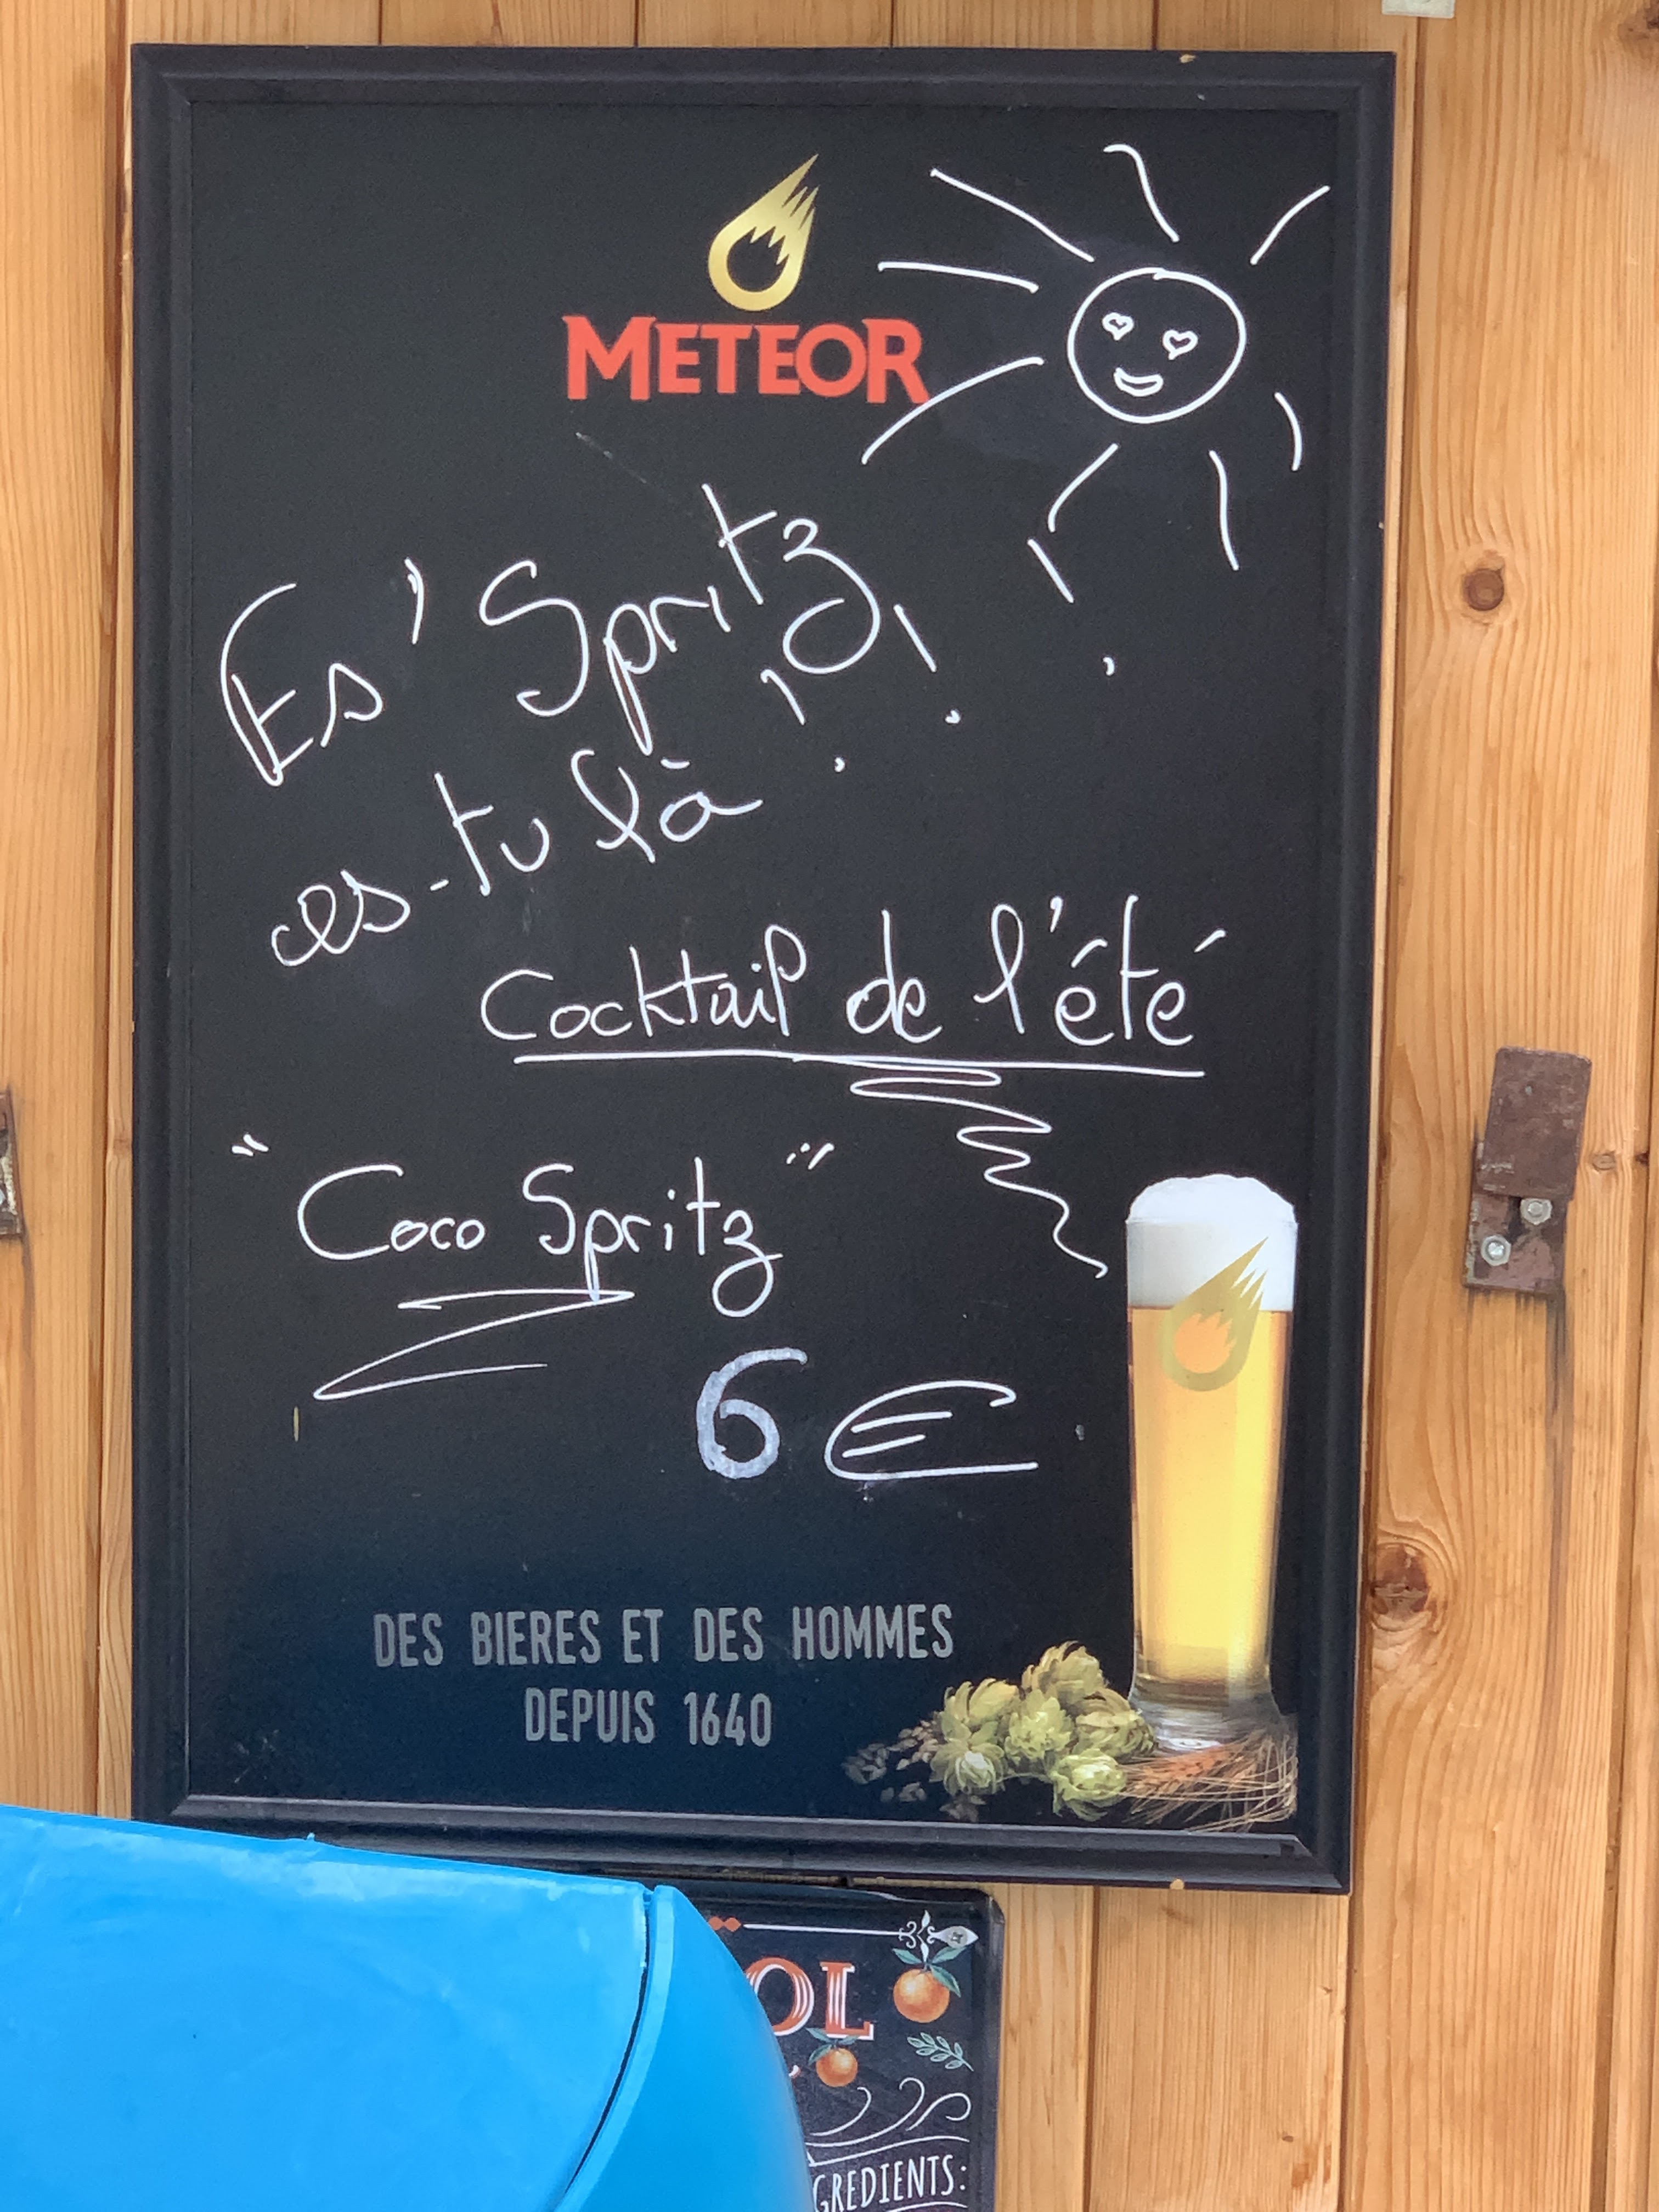 METEOR
Es' Spritz
es-tu là !!!
Cocktail de l'été
"Coco Spritz"
6 €
DES BIERES ET DES HOMMES
DEPUIS 1640
OL
GREDIENTS: